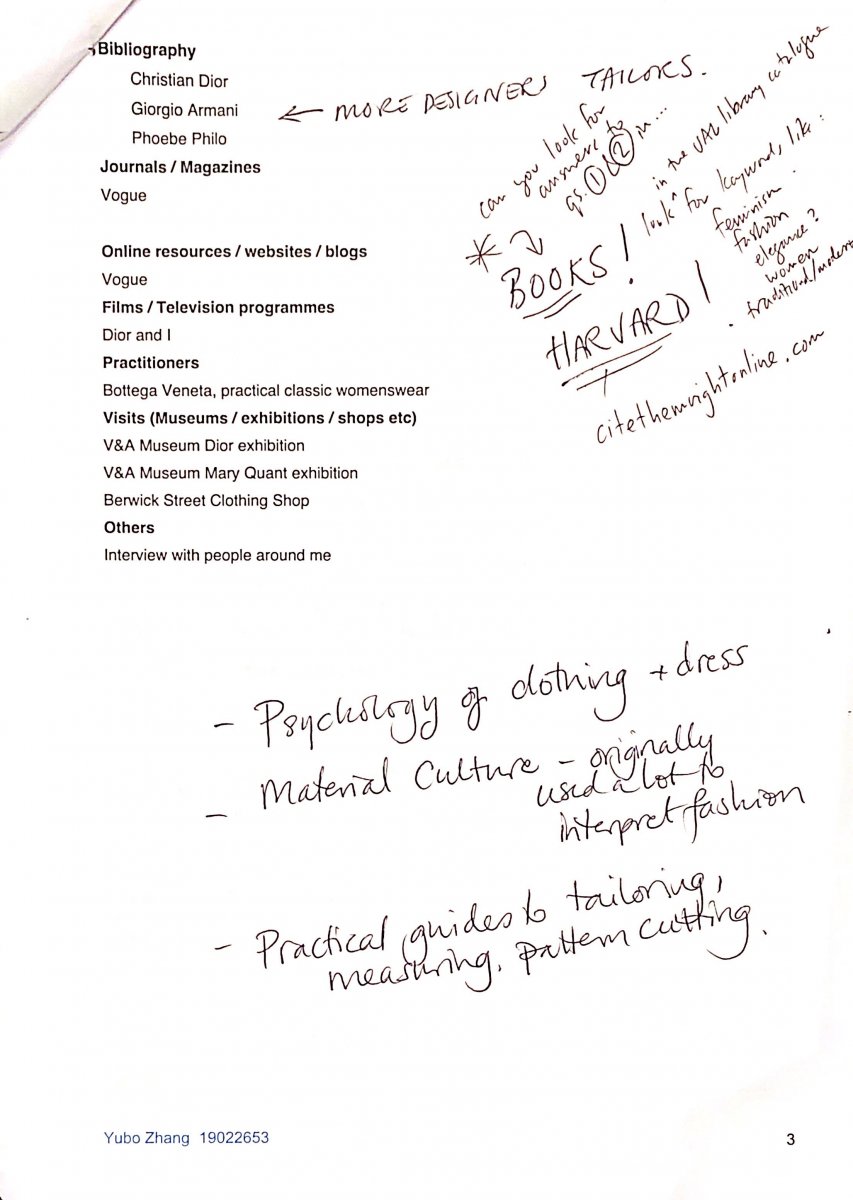 Bibliography
Christian Dior
Giorgio Armani
← MORE DESIGNERS TAILORS.
Phoebe Philo
Journals / Magazines
Vogue
Online resources / websites / blogs
Vogue
Films / Television programmes
Dior and I
Practitioners
Bottega Veneta, practical classic womenswear
Visits (Museums / exhibitions / shops etc)
V&A Museum Dior exhibition
V&A Museum Mary Quant exhibition
Berwick Street Clothing Shop
Others
Interview with people around me
can you look for
answers to
qs. ① & ② in...
BOOKS!
in the UAL library catalogue
look ^ for keywords, like:
feminism
fashion
elegance?
women
traditional/modern
HARVARD!
citethemrightonline.com
- Psychology of clothing + dress
- Material Culture - originally
used a lot to
interpret fashion
- Practical guides to tailoring,
measuring, pattern cutting.
Yubo Zhang 19022653
3